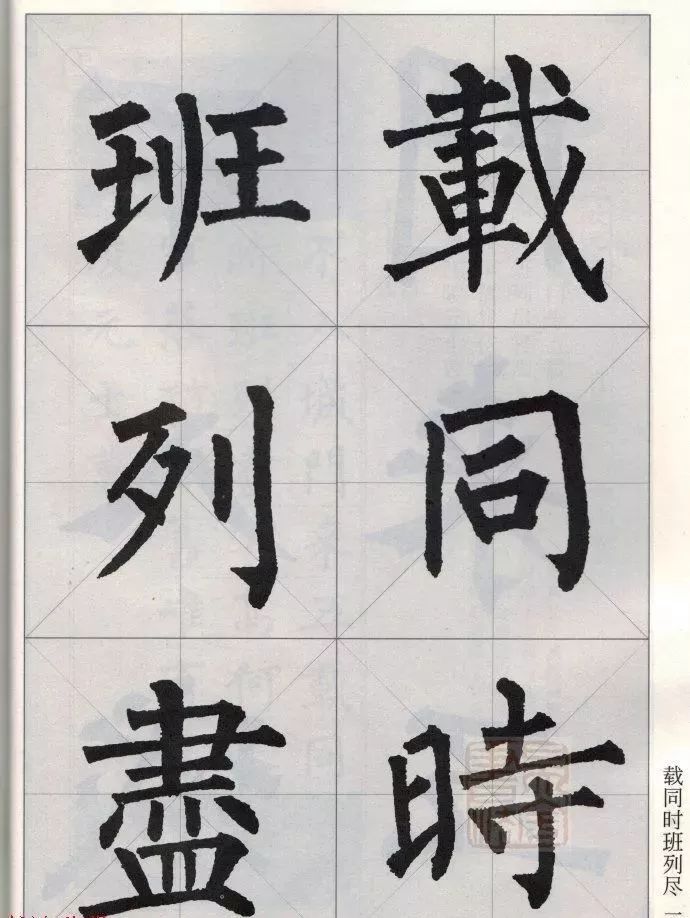 載同時
班列盡
载同时班列尽